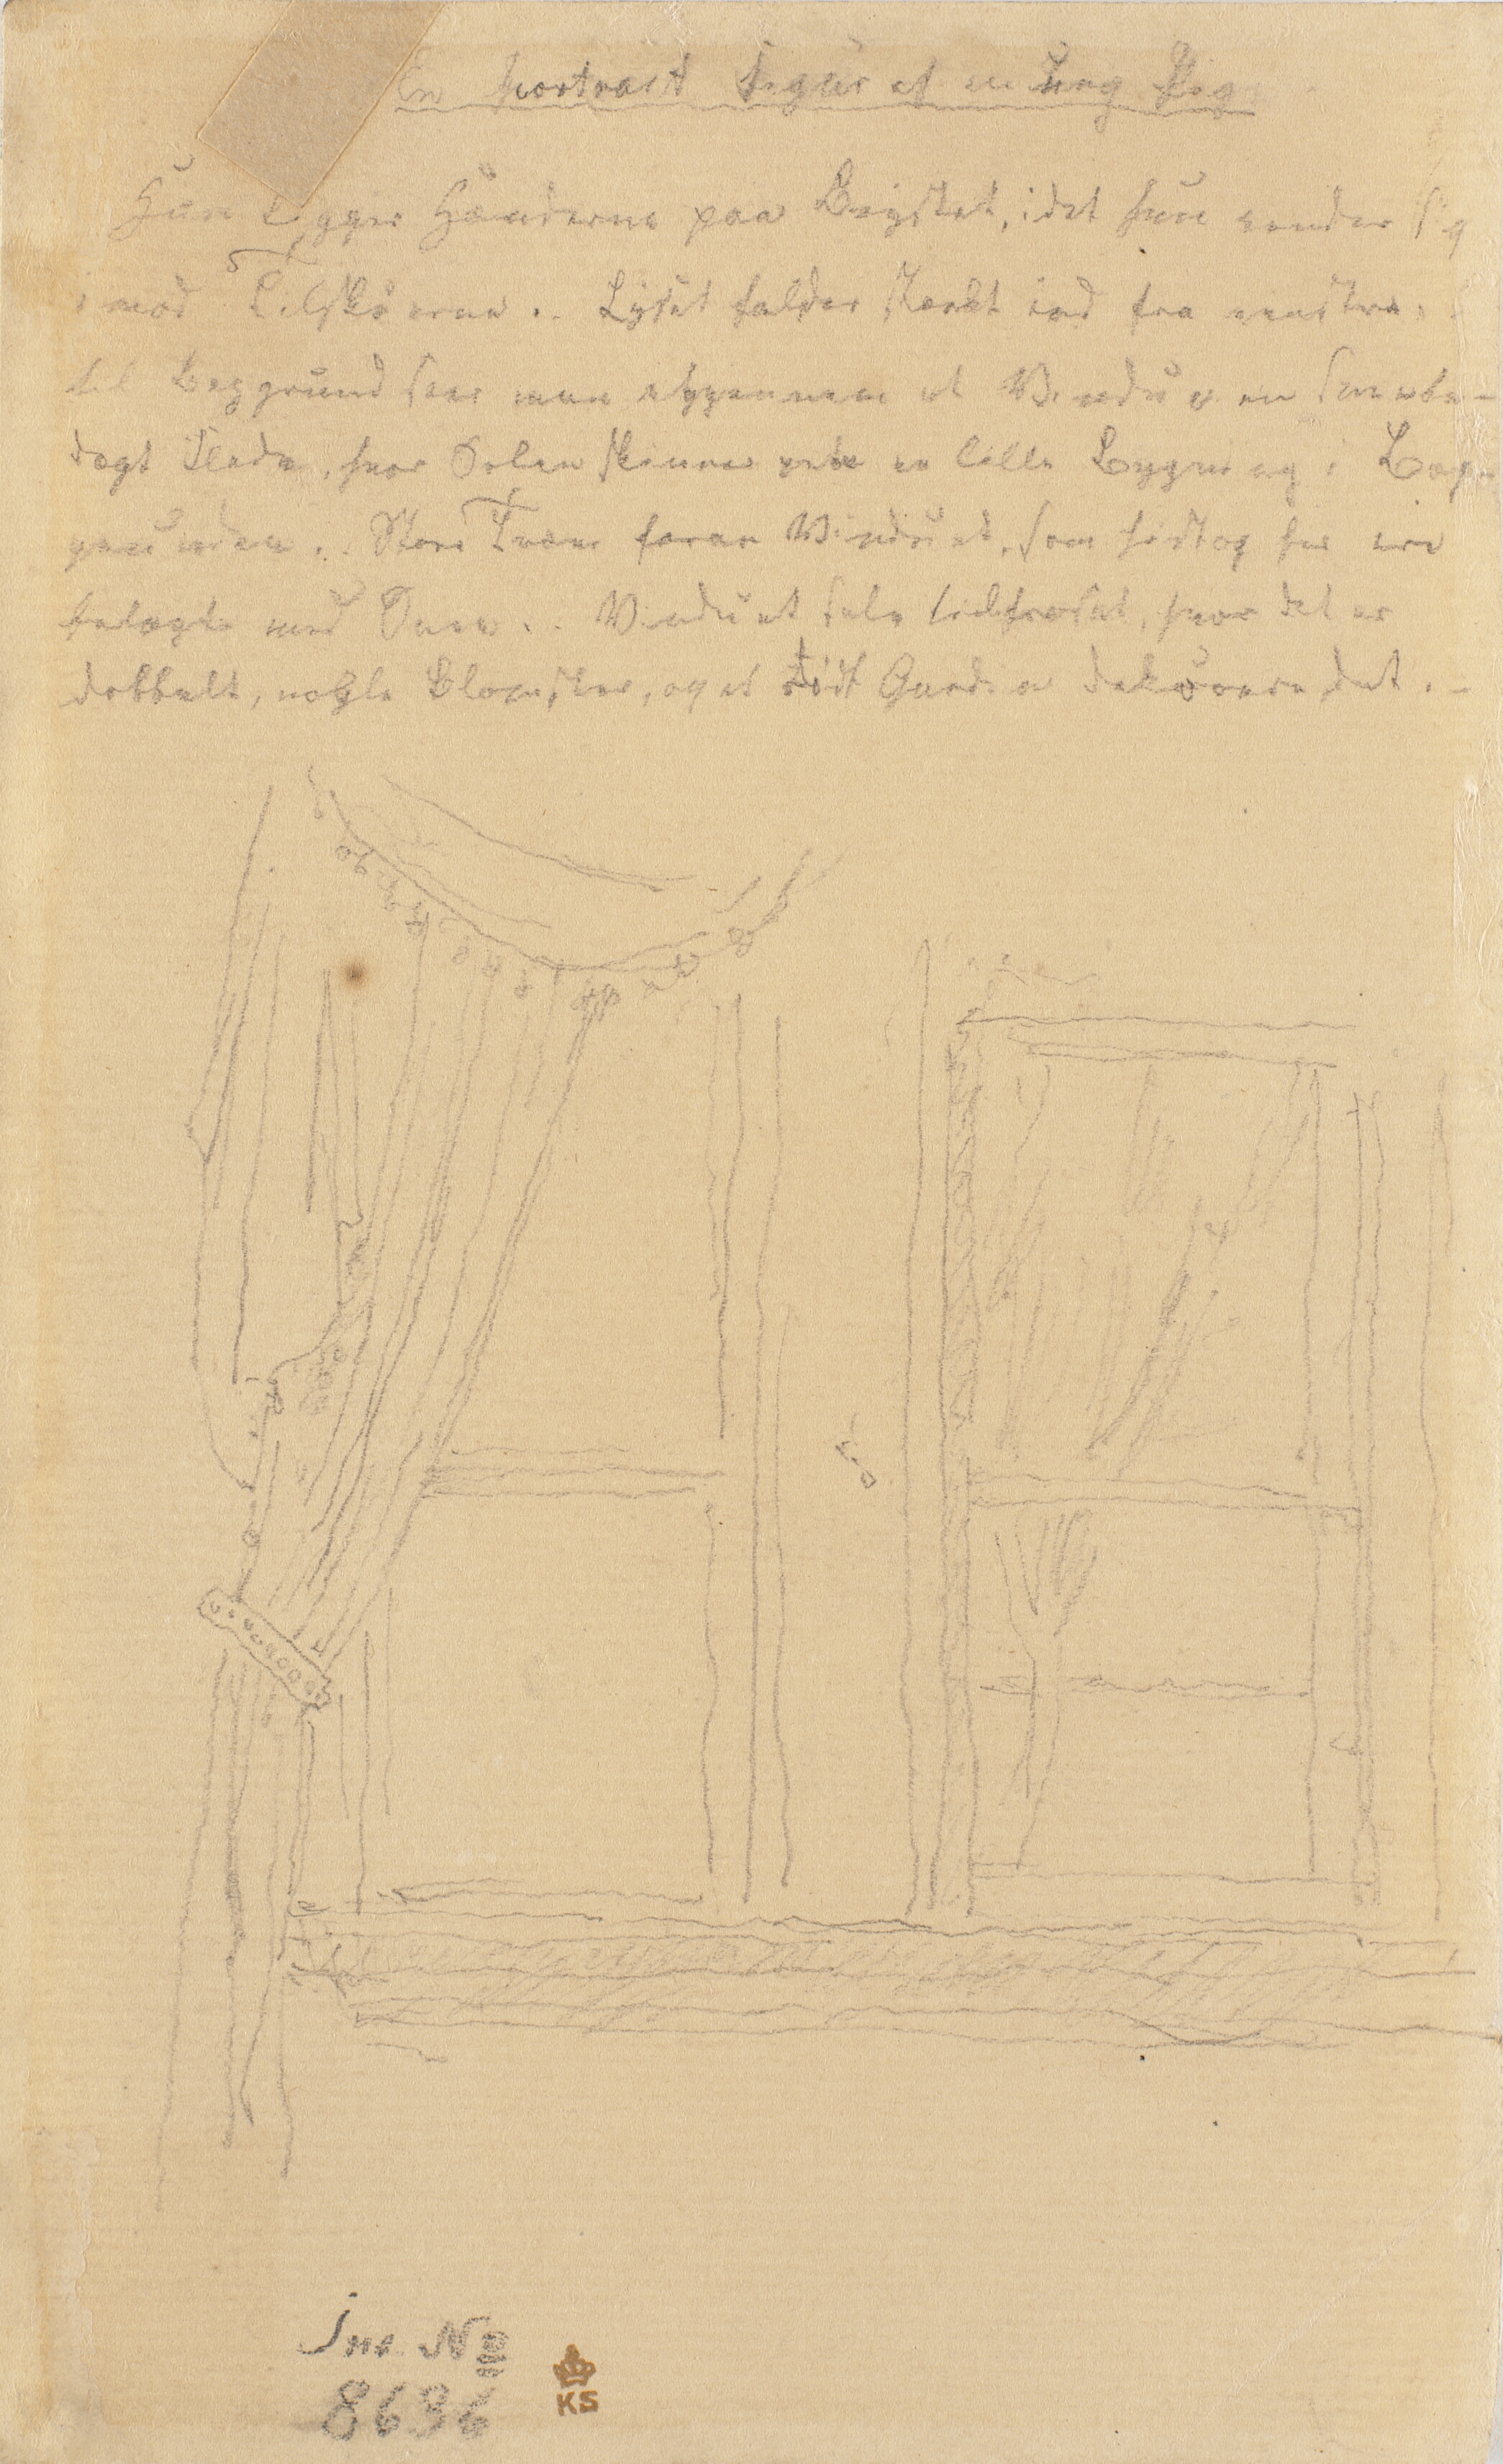 En Portrait Figur af en Ung Pige
Hun ligger Hænderne paa Brystet, idet hun vender sig
imod Tilskuerne. Lyset falder stærkt ind fra venstre.
til Baggrund seer man igjennem et Vindue en sneebe-
dægt Slette, hvor Solen skinner paa en lille Bygning i Bag-
grunden. Store Træer foran Vinduet, som hist og her ere
belagte med Snee. Vinduet selv tilfrosset, hvor det er
dobbelt, nogle Blomster, og et rødt Gardin dekorere det.
Inv No
8636
KS